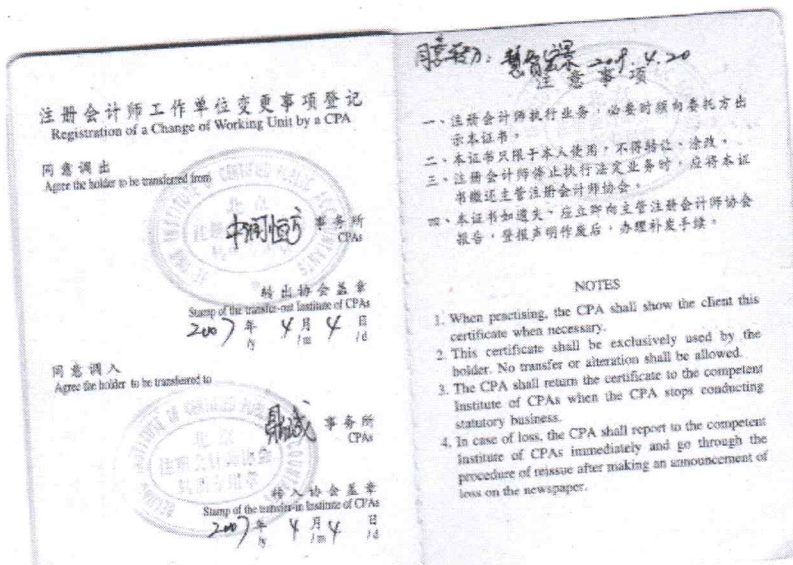 注册会计师工作单位变更事项登记
Registration of a Change of Working Unit by a CPA
同意调出
Agree the holder to be transferred from
事务所
CPAs
转出协会盖章
Stamp of the transfer-out Institute of CPAs
2007 年 4 月 4 日
/y /m /d
同意调入
Agree the holder to be transferred to
鼎诚 事务所
CPAs
转入协会盖章
Stamp of the transfer-in Institute of CPAs
2007 年 4 月 4 日
/y /m /d
4.20
注意事项
一、注册会计师执行业务，必要时须向委托方出
示本证书。
二、本证书只限于本人使用，不得转让、涂改。
三、注册会计师停止执行法定业务时，应将本证
书缴还主管注册会计师协会。
四、本证书如遗失，应立即向主管注册会计师协会
报告，登报声明作废后，办理补发手续。
NOTES
1. When practising, the CPA shall show the client this
certificate when necessary.
2. This certificate shall be exclusively used by the
holder. No transfer or alteration shall be allowed.
3. The CPA shall return the certificate to the competent
Institute of CPAs when the CPA stops conducting
statutory business.
4. In case of loss, the CPA shall report to the competent
Institute of CPAs immediately and go through the
procedure of reissue after making an announcement of
loss on the newspaper.